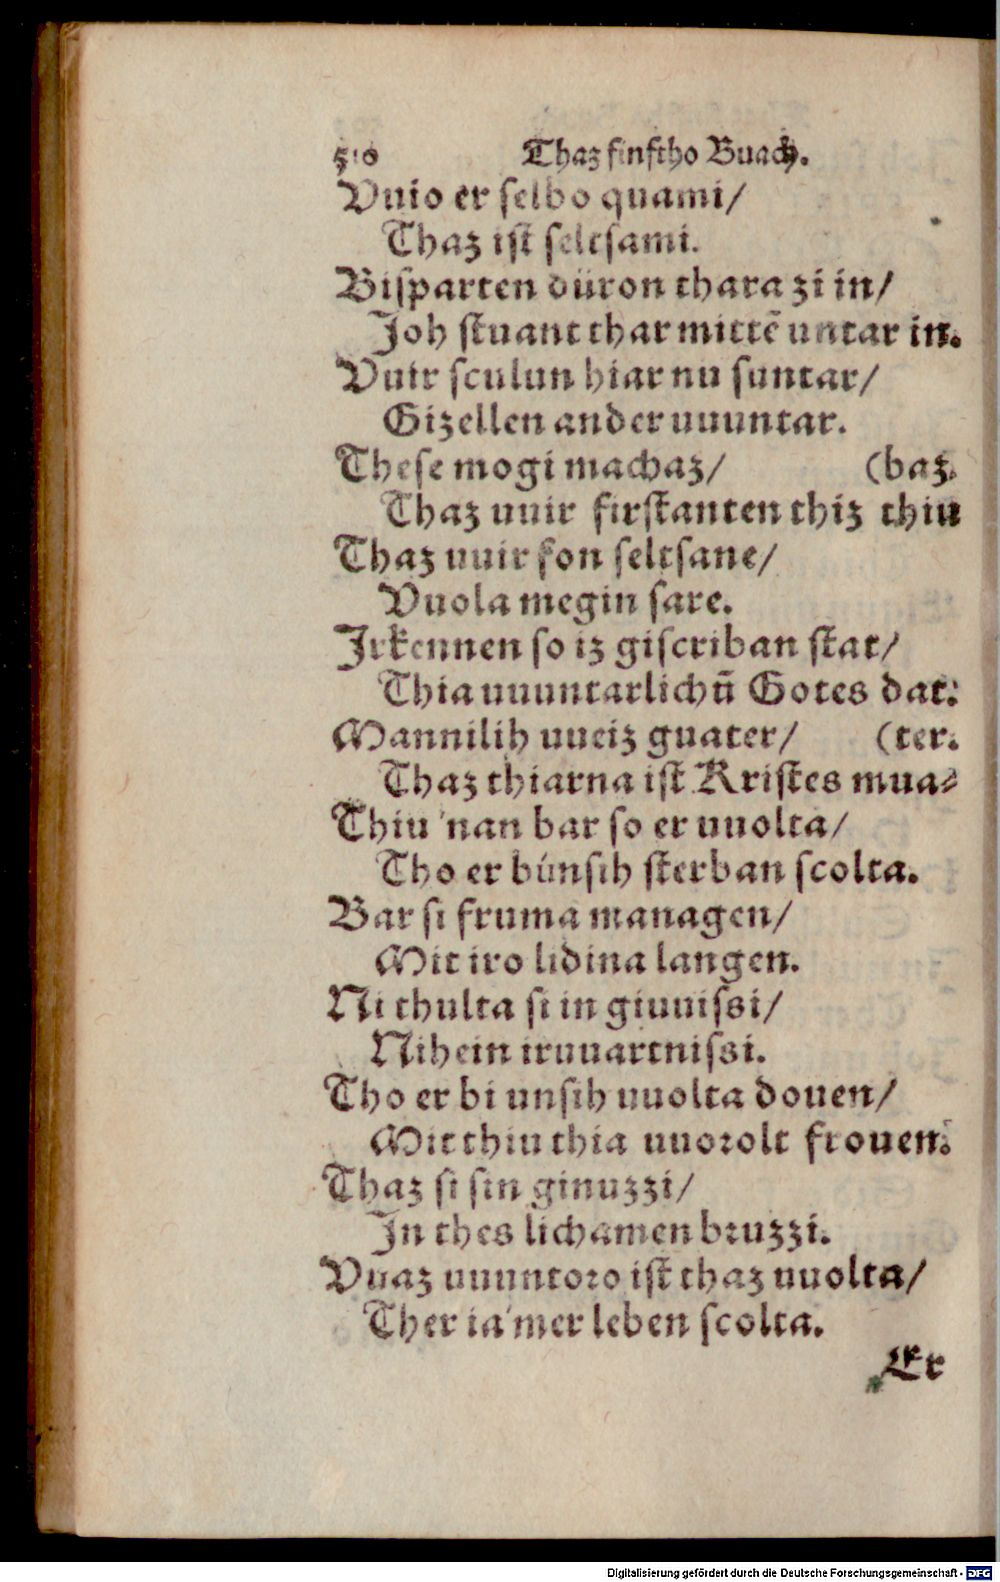 510 Thaz finftho Buach.
Vuio er selbo quami/
Thaz ist seltsami.
Bisparten düron thara zi in/
Joh stuant thar mittē untar in.
Vuir sculun hiar nu suntar/
Gizellen ander uuuntar.
These mogi machaz/ (baz.
Thaz uuir firstanten thiz thiu
Thaz uuir fon seltsane/
Vuola megin sare.
Jrkennen so iz giscriban stat/
Thia uuuntarlichū Gotes dat:
Mannilih uueiz guater/ (ter.
Thaz thiarna ist Kristes mua⸗
Thiu 'nan bar so er uuolta/
Tho er búnsih sterban scolta.
Bar si fruma managen/
Mit iro lidina langen.
Ni thulta si in giuuissi/
Nihein iruuartnissi.
Tho er bi unsih uuolta douen/
Mit thiu thia uuorolt frouen.
Thaz si sin ginuzzi/
Jn thes lichamen bruzzi.
Vuaz uuuntoro ist thaz uuolta/
Ther ia'mer leben scolta.
Er
Digitalisierung gefördert durch die Deutsche Forschungsgemeinschaft - DFG